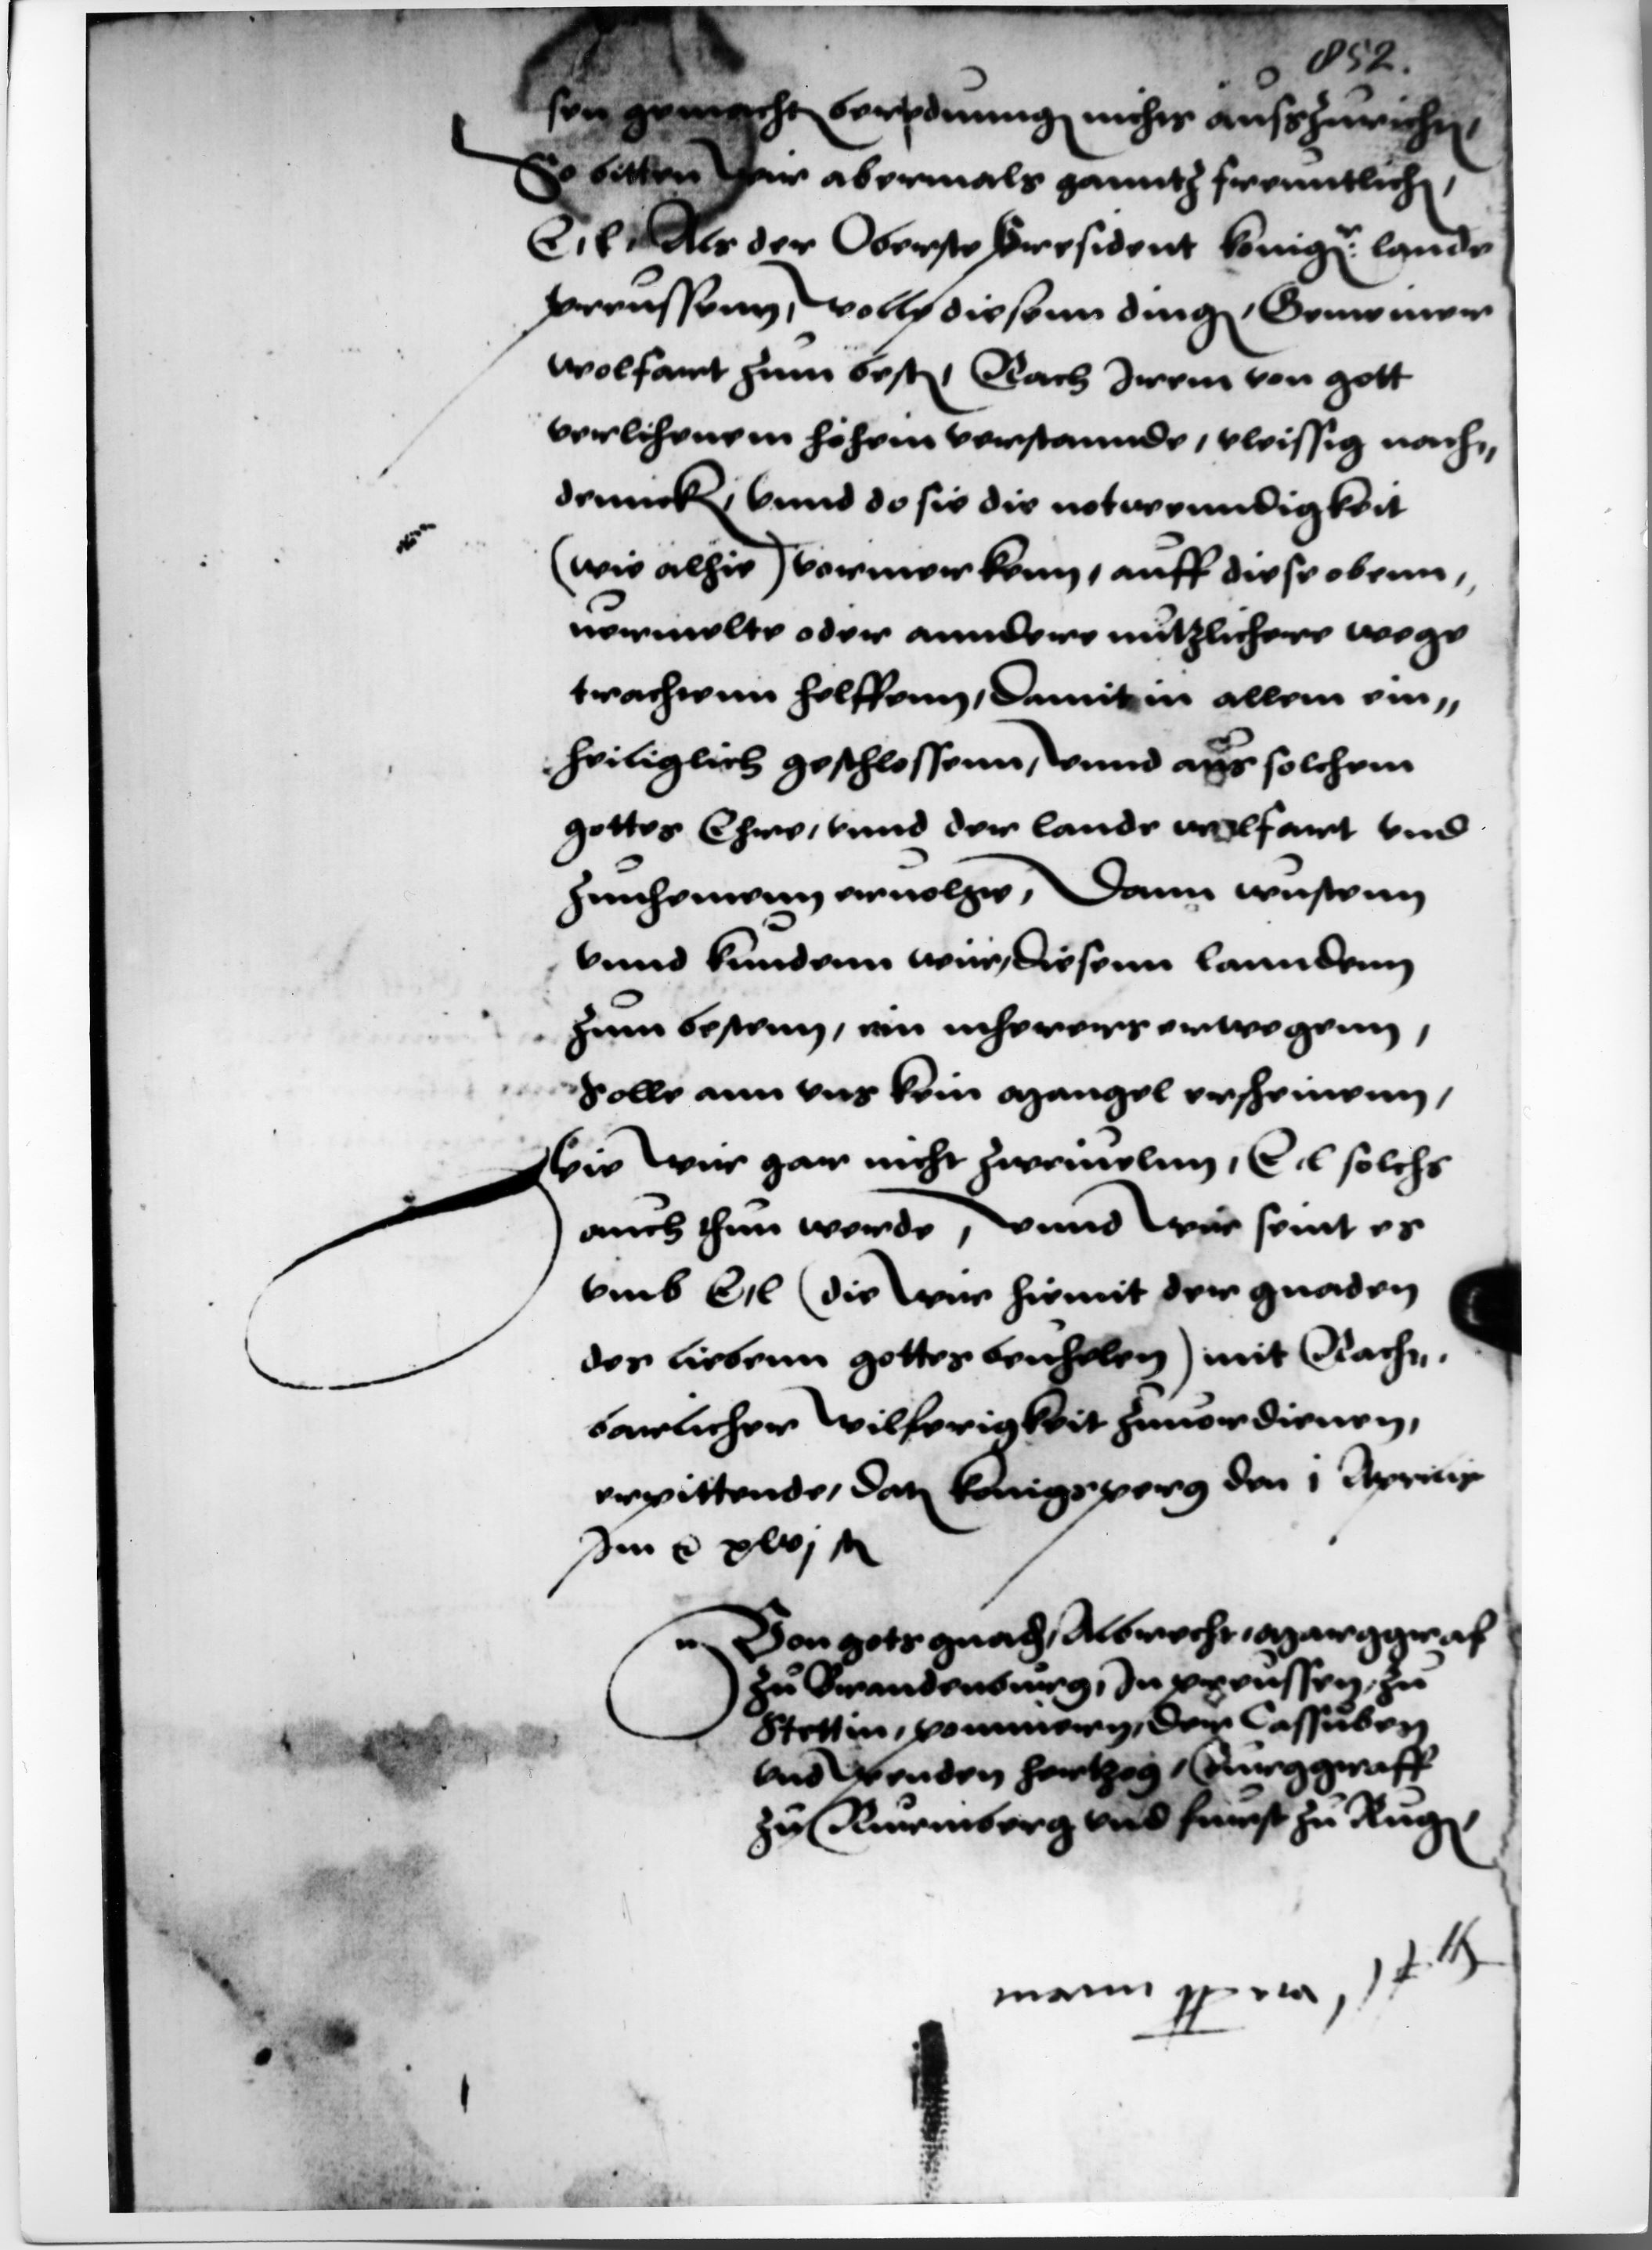 852.
sen gemachten berednungen nichts auszurichten,
So bitten wir abermals ganntz freuntlich,
E. l. Als der Oberste President konigr. lande
preussenn, wolle diesenn dingen, Gemeiner
wolfart zum besten, Nach Irem von gott
verlihenem hohem verstannde, vleissig nach„
dencken, vnnd do sie die notwenndigkeit
(wie alhie) vermerkenn, auff diese obenn„
uermelte oder anndere nutzlichere wege
trachtenn helffenn, Damit in allem ein„
heiliglich geschlossenn, vnnd aus solchem
gottes Ehre, vnnd der lande wolfart vnd
zunhemenn eruolge, Dann wustenn
vnnd kundenn wir, diesenn lanndenn
zum bestenn, ein mhereres erwegenn,
Solle ann vns kein mangel ersheinenn,
wie wir gar nicht zweiuelnn, E. l solchs
auch thun werde, vnnd wir seint es
vmb E. l (die wir hiemit der gnaden
des liebenn gottes beuhelen) mit Nach„
barlicher wilferigkeit zuuordienen,
erpittende, Dat konigsperg den 1 Aprilis
Im xlvj
Von gots gnaden, Albrecht, marggraf
zu Brandenburg, In preussen, zu
Stettin, pommern, der Cassuben
vnd wenden hertzog, Burggraff
zu Nurmberg vnd furst zu Rugen,
manu ppria,